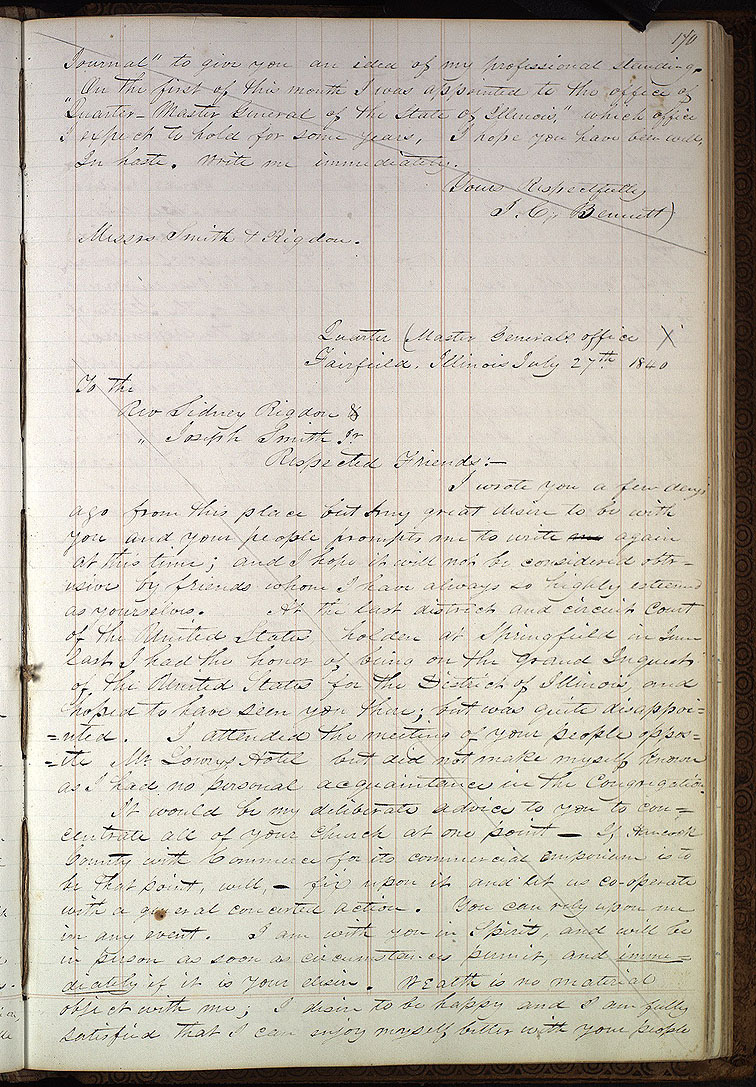 170
Journal" to give you an idea of my professional standing.
On the first of this month I was appointed to the office of
"Quarter-Master General of the State of Illinois," which office
I expect to hold for some years, I hope you have been well,
In haste. Write me immediately.
Yours Respectfully
J. C. Bennett)
Messrs Smith & Rigdon.
Quarter (Master Generals office X
Fairfield, Illinois July 27th 1840
To the
Rev Sidney Rigdon &
" Joseph Smith Jr
Respected Friends:—
I wrote you a few days
ago from this place but my great desire to be with
you and your people prompts me to write again
at this time; and I hope it will not be considered obtr-
usive by friends whom I have always so highly esteemed
as yourselves. At the last district and circuit Court
of the United States holden at Springfield in June
last I had the honor of being on the Grand Inquest
of the United States for the District of Illinois, and
hoped to have seen you there; but was quite disappoi=
=nted. I attended the meeting of your people oppos=
=ite Mr Lowrys Hotel but did not make myself known
as I had no personal acquaintance in the Congregation.
It would be my deliberate advice to you to con=
centrate all of your Church at one point — If Hancock
County with Commerce for its commercial emporium is to
be that point, well, — fix upon it and let us co-operate
with a general concerted action. You can rely upon me
in any event. I am with you in Spirit, and will be
in person as soon as circumstances permit, and imme=
diately if it is your desire. Wealth is no material
object with me; I desire to be happy and I am fully
satisfied that I can enjoy myself better with your people